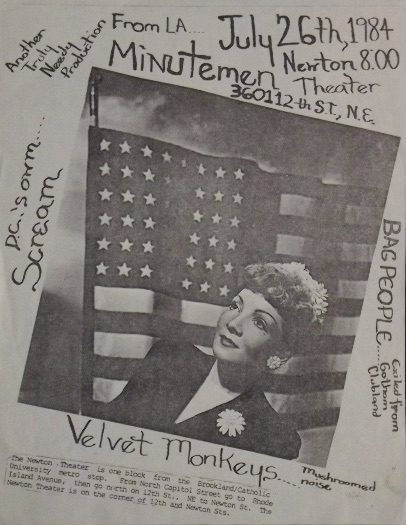 Another
Truly
Needy
Production
From LA....
July 26th, 1984
Minutemen
Newton 8:00
Theater
3601 12th ST., N.E.
D.C.'s orm....
Scream
BAG PEOPLE....
exiled from
Gotham
Clubland
Velvet Monkeys....
mushroomed
noise
The Newton Theater is one block from the Brookland/Catholic
University metro stop. From North Capitol Street go to Rhode
Island Avenue, then go north on 12th St., NE to Newton St. The
Newton Theater is on the corner of 12th and Newton Sts.